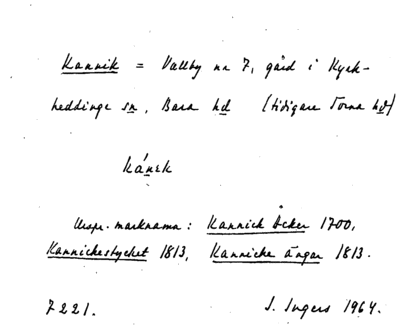 Kannik = Vallby nr 7, gård i Kyrk-
heddinge sn, Bara hd (tidigare Torna hd)
kánək
Urspr. marknamn: Kannick Åcker 1700,
Kannickestycket 1813, Kannicke ängar 1813.
7221. I. Ingers 1964.